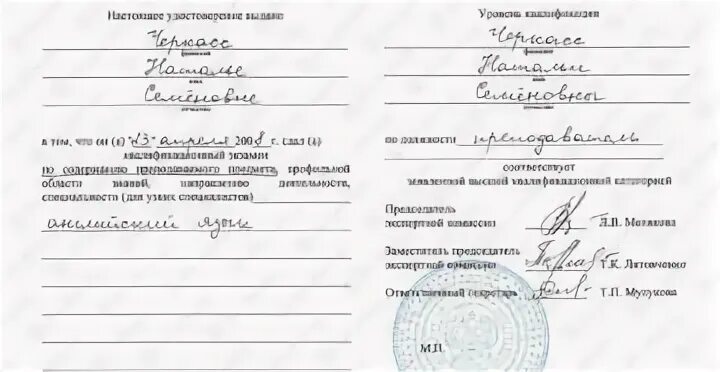 Настоящее удостоверение выдано
Черкасс
фамилия
Наталье
имя
Семёновне
отчество
в том, что он (а) "23" апреля 2008 г. сдал (а)
квалификационный экзамен
по содержанию преподаваемого предмета, профильной
области знаний, направлению деятельности,
специальности (для узких специалистов)
английский язык
Уровень квалификации
Черкасс
фамилия
Натальи
имя
Семёновны
отчество
по должности преподаватель
соответствует
заявленной высшей квалификационной категории
Председатель
экспертной комиссии
Заместитель председателя
экспертной комиссии
Т.К.
Ответственный секретарь
Т.П.
М.П.